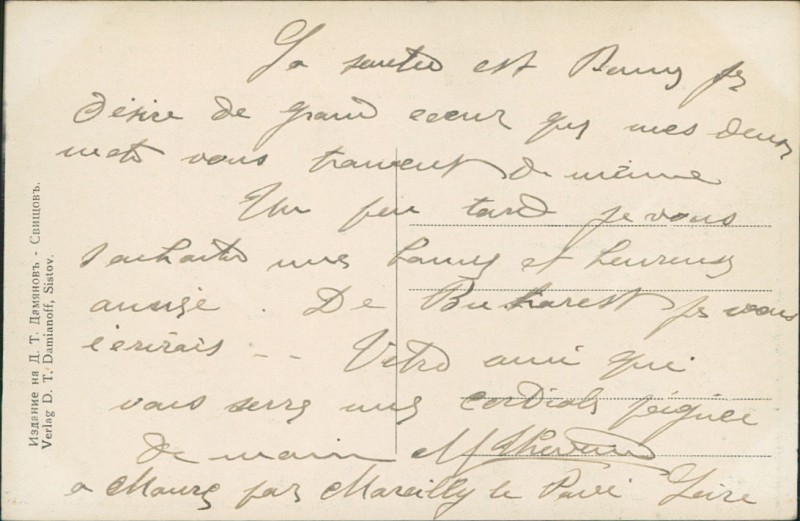 La santé est Bonne je
désire de grand coeur que mes deux
mots vous trouvent de même
Un peu tard je vous
souhaite une bonne et heureuse
année. De Bukarest je vous
écrirais -- Votre ami qui
vous serre une cordiale poignée
de main
a par Marcilly le Pavé Loire
Издание на Д. Т. Дамяновъ - Свищовъ.
Verlag D. T. Damianoff, Sistov.